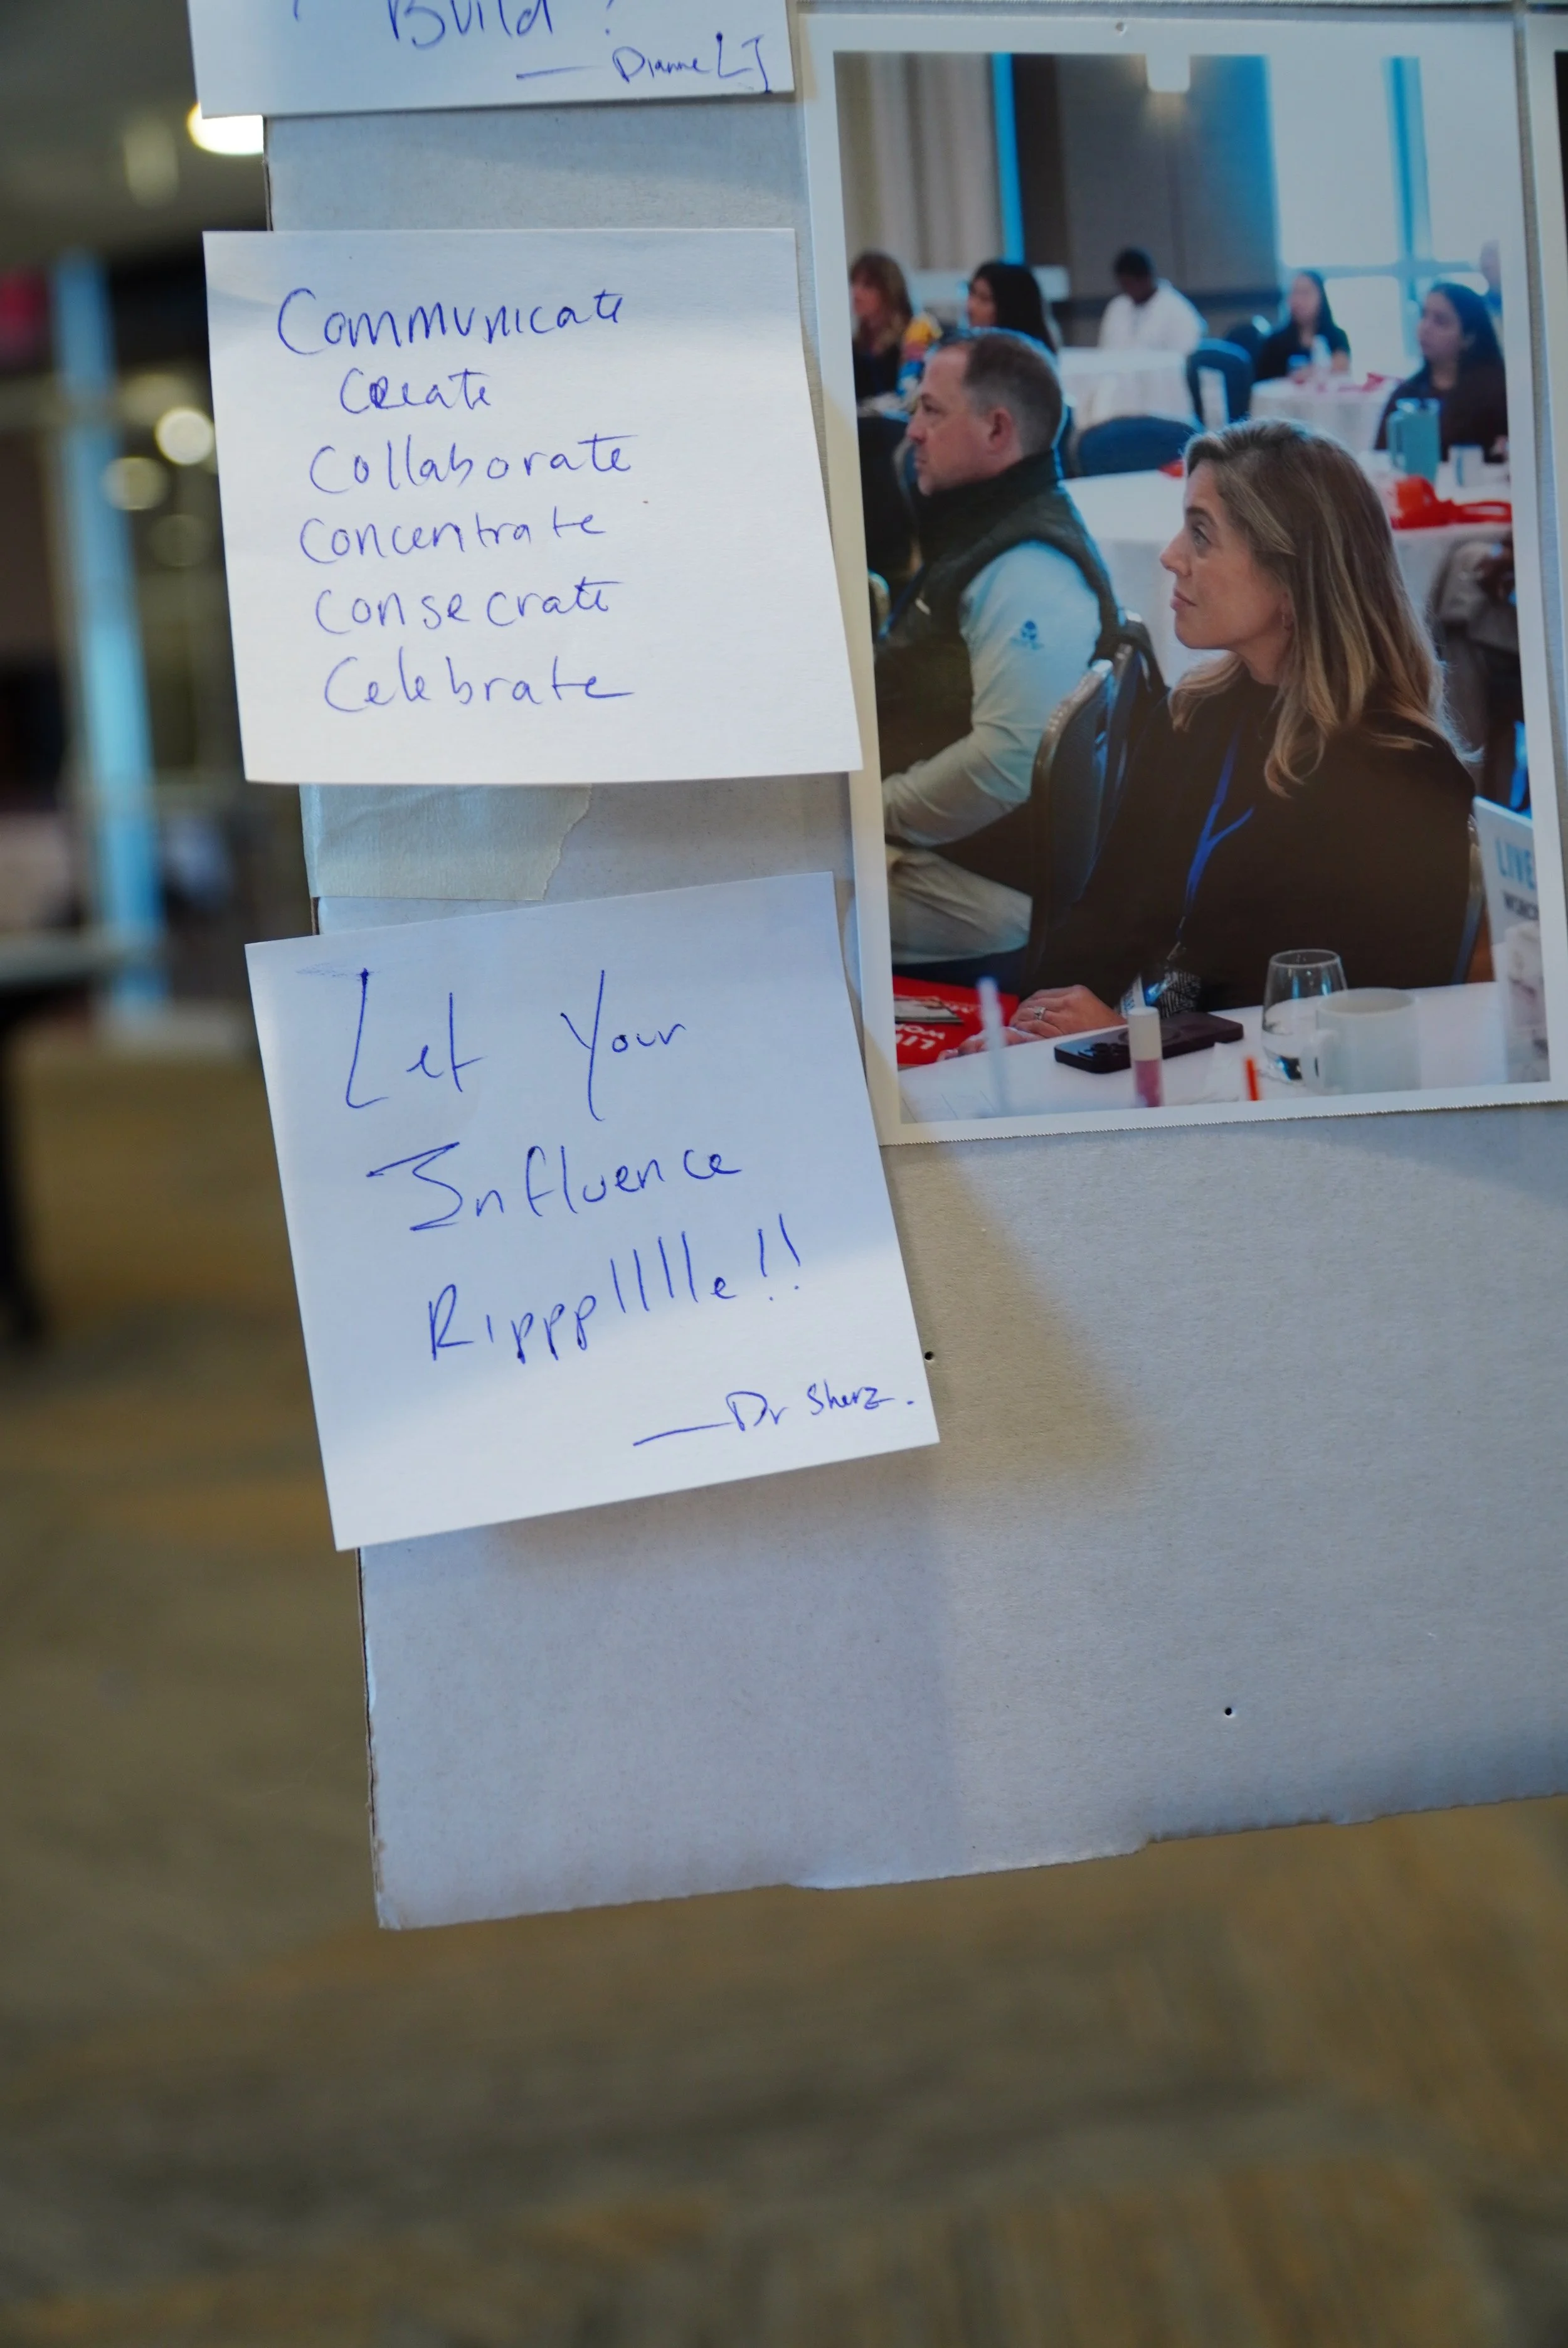 Build!
— Dianne LJ
Communicate
Create
Collaborate
Concentrate
Consecrate
Celebrate
Let Your
Influence
Rippplllle!!
— Dr Sherz.
LIVE